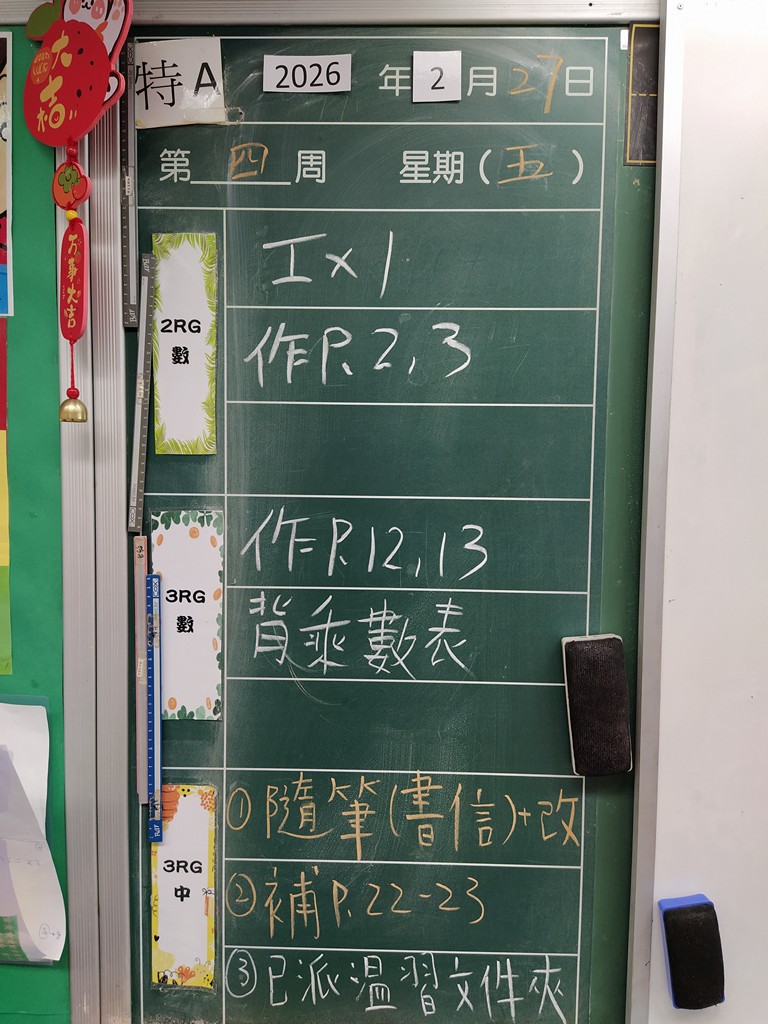 大吉
万事大吉
特A 2026 年 2 月 27 日
第 四 周 星期(五)
2RG
數
工x1
作P.2,3
3RG
數
作P.12,13
背乘數表
3RG
中
①隨筆(書信)+改
②補P.22-23
③已派溫習文件夾